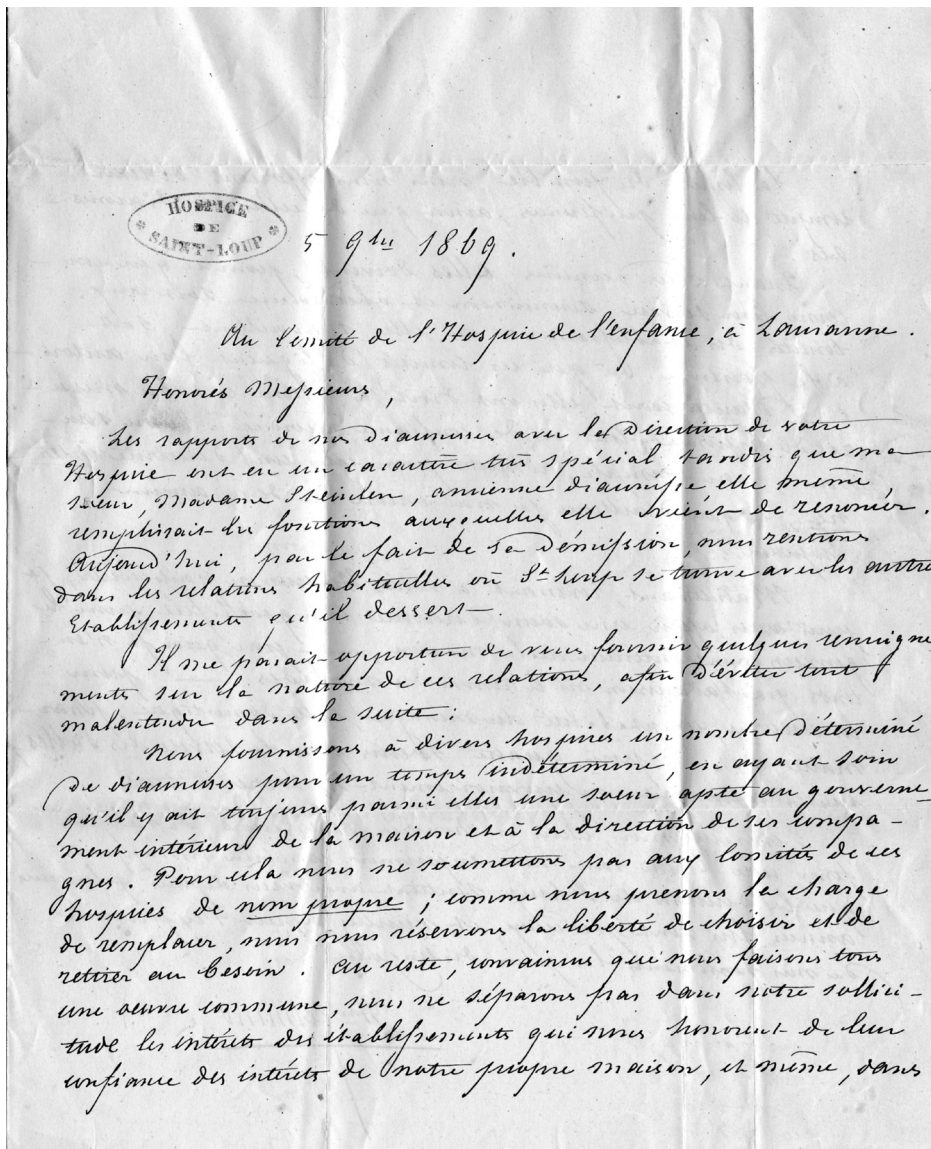 HOSPICE
DE
SAINT-LOUP
5 9bre 1869.
Au Comité de l'Hospice de l'enfance, à Lausanne.
Honorés Messieurs,
Les rapports de nos Diaconesses avec la Direction de votre
Hospice ont eu un caractère très spécial tandis que ma
sœur, Madame Steinlen, ancienne diaconesse elle même,
remplissait les fonctions auxquelles elle vient de renoncer.
Aujourd'hui, par le fait de sa démission, nous rentrons
dans les relations habituelles où St Loup se trouve avec les autres
Etablissements qu'il dessert.
Il me paraît opportun de vous fournir quelques renseigne
ments sur la nature de ces relations, afin d'éviter tout
malentendu dans la suite:
Nous fournissons à divers hospices un nombre déterminé
de diaconesses pour un temps indéterminé, en ayant soin
qu'il y ait toujours parmi elles une sœur apte au gouverne-
ment intérieur de la maison et à la direction de ses compa-
gnes. Pour cela nous ne soumettons pas aux Comités de ces
hospices de nom propre; comme nous prenons la charge
de remplacer, nous nous réservons la liberté de choisir et de
retirer au besoin. Au reste, convaincus que nous faisons tous
une œuvre commune, nous ne séparons pas dans notre sollici-
tude les intérêts des établissements qui nous honorent de leur
confiance des intérêts de notre propre maison, et même, dans